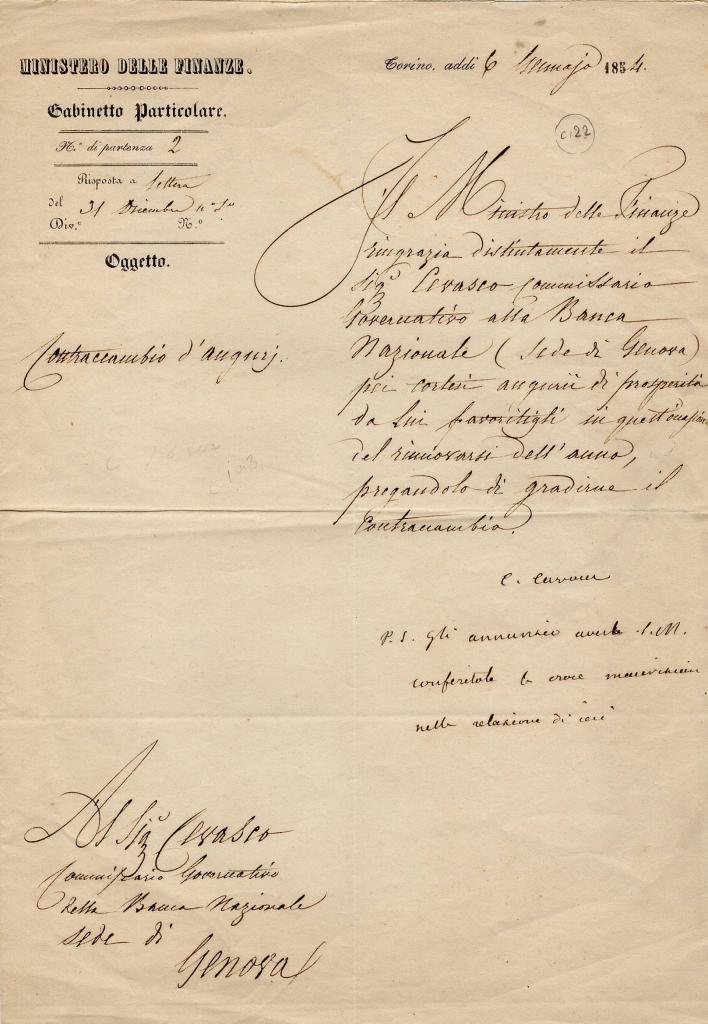 MINISTERO DELLE FINANZE.
Gabinetto Particolare.
N.° di partenza 2
Risposta a lettera
del 31 Dicembre n°
Div.e N.°
Oggetto.
Contraccambio d'augurj.
Torino, addì 6 Gennajo 1854.
c. 22
Il Ministro delle Finanze
ringrazia distintamente il
Sig.r Cevasco Commissario
Governativo alla Banca
Nazionale (Sede di Genova)
pei cortesi augurii di prosperità
da lui favoritigli in quest'occasione
del rinnovarsi dell'anno,
pregandolo di gradirne il
Contraccambio.
C. Cavour
P. S. Gli annunzio avere S. M.
conferitole la croce mauriziana
nella relazione di ieri
Al Sig.r Cevasco
Commissario Governativo
della Banca Nazionale
Sede di
Genova